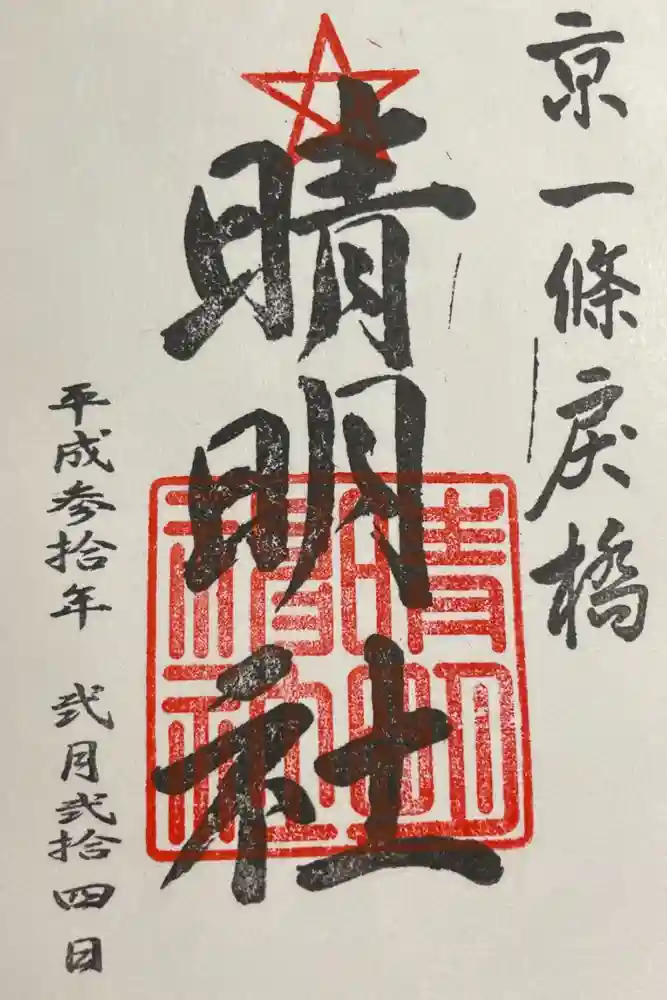 京一條戻橋
晴明社
晴明
神社
平成参拾年 弐月弐拾四日